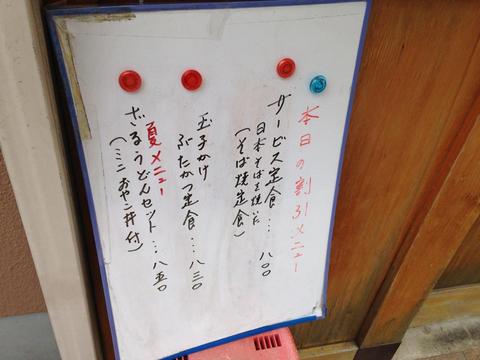 本日の割引メニュー
サービス定食…八〇〇
日本そばを焼いた
(そば焼定食)
玉子かけ
ぶたかつ定食…八三〇
夏メニュー
ざるうどんセット…八五〇
(ミニおやこ丼付)